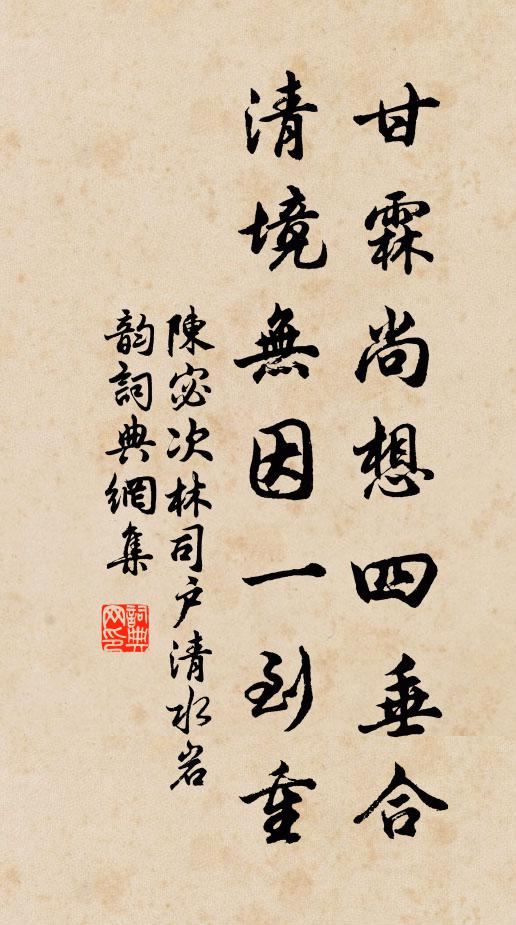 甘霖尚想四垂合
清境無因一到重
陳宓次林司戶清水岩
韵詞典網集
詞典網印